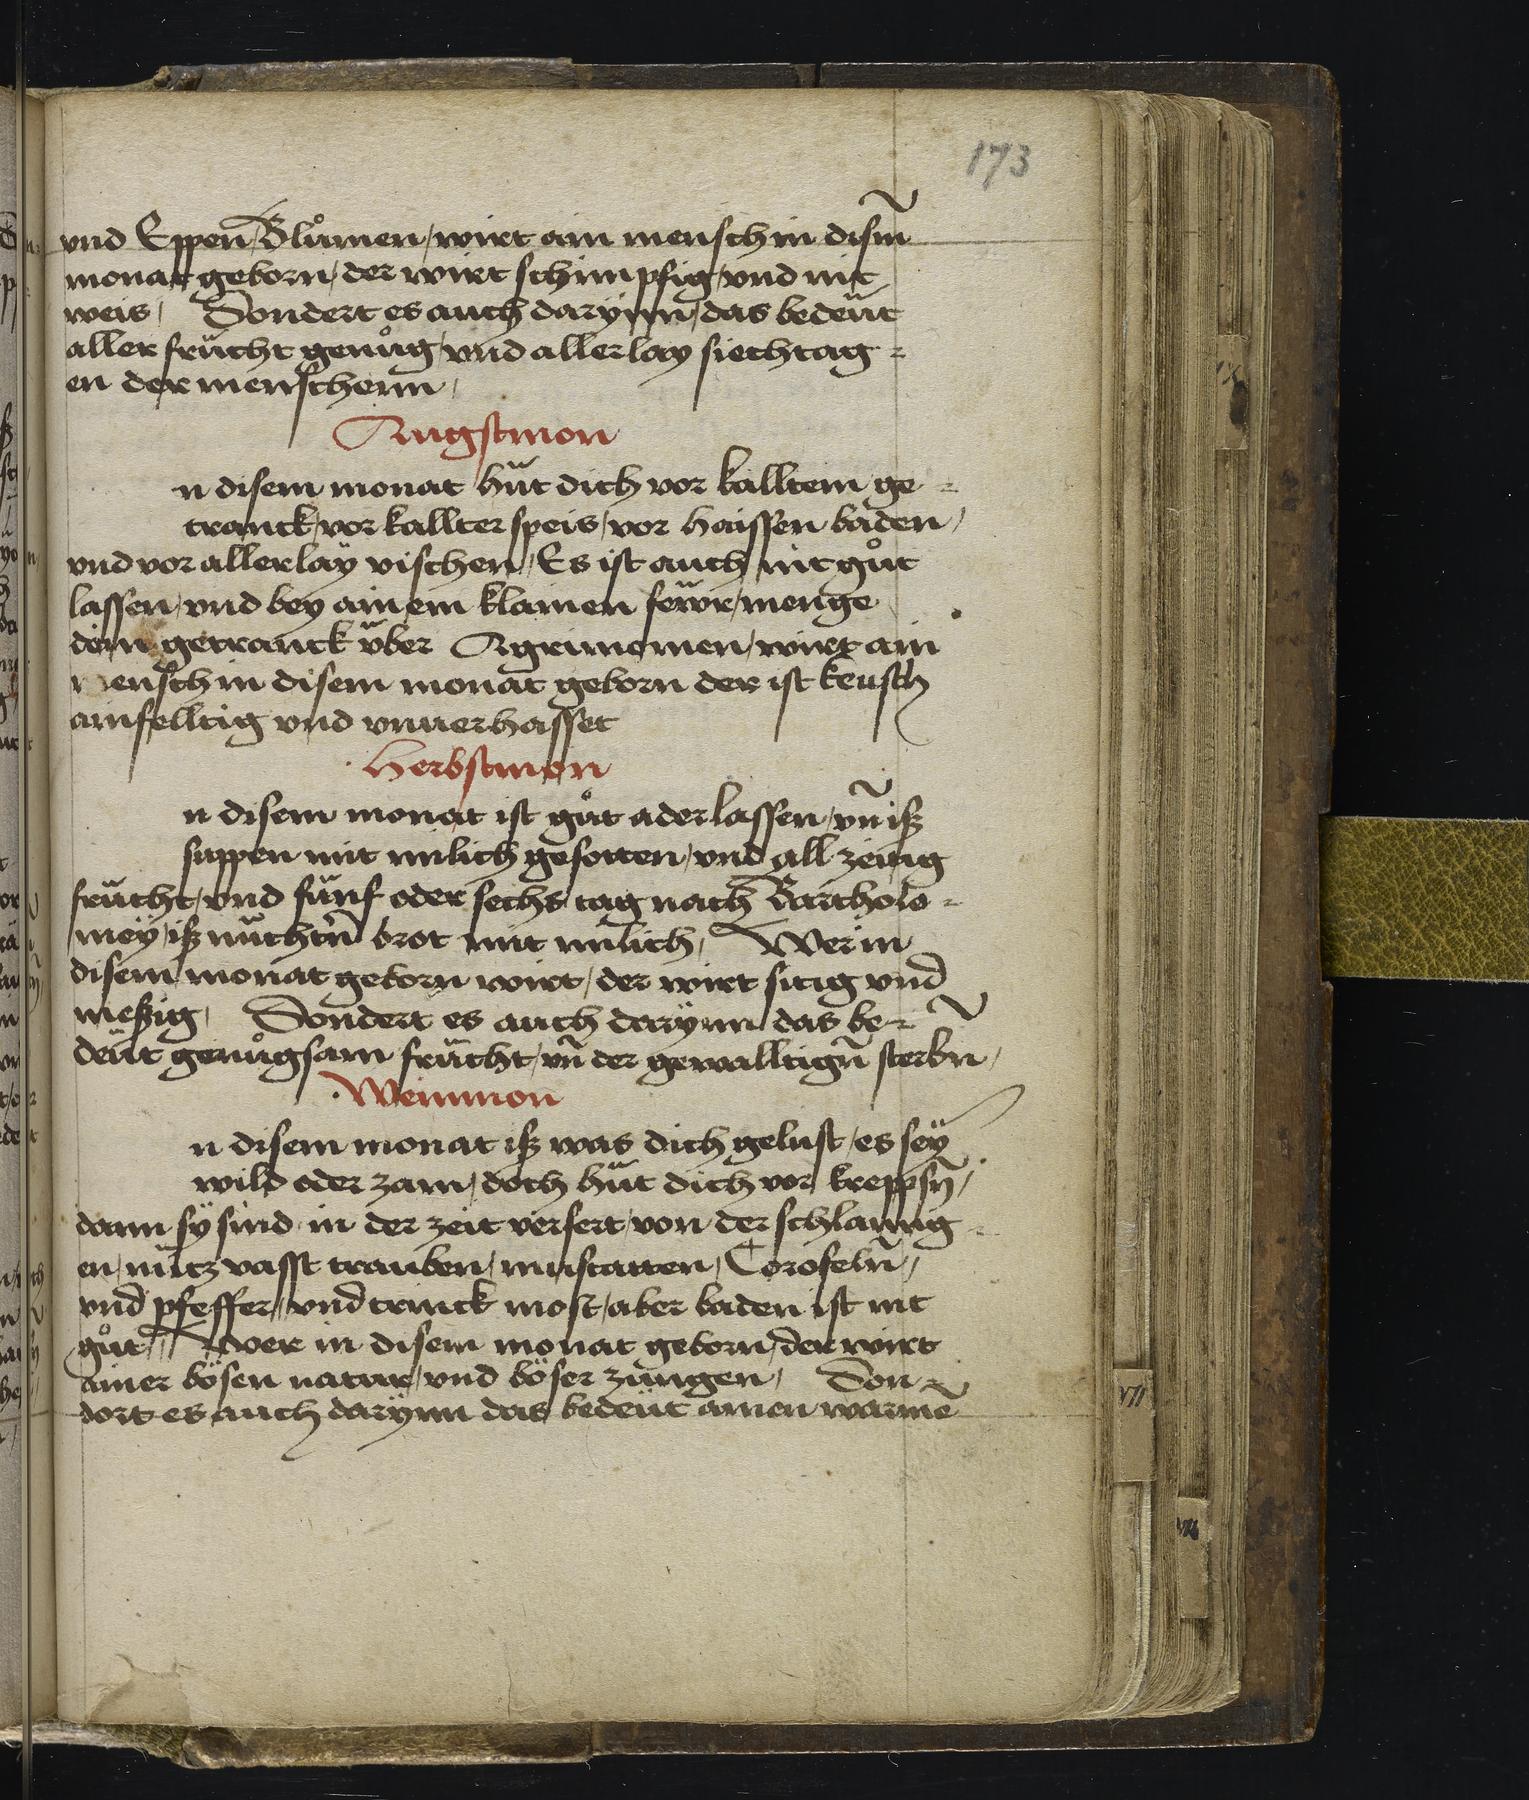 173
vnd Eppen Blůmen / wirt ain mensch in dism̃
monat geborn / der wirt schimpfig / vnd nit
weis / Dondert es auch darÿnn / das bedeüt
aller frücht genůg / vnd allerlay siechtag =
en der menschenn /
Augstmon
n disem monat hüt dich vor kalltem ge =
tranck / vor kallter speis / vor haissen baden /
vnd vor allerlaÿ vischen / Es ist auch nit gůt
lassen / vnd bey ainem klainen fewr / menge
dein getranck v̈ber Agrimonien / wirt ain
mensch in disem monat geborn der ist keüsch
ainfelltig vnd vnuerhasset
Herbstmon
n disem monat ist gůt aderlassen / vñ iß
suppen mit milich gesotten / vnd all zeitig
frücht / vnd fünf oder sechs tag nach Bartholo =
meÿ / iß nüchtñ brot mit milich / Wer in
disem monat geborn wirt / der wirt sitig vnd
meßig / Dondert es auch darÿnn das be =
deüt genůgsam frücht / vñ der gewalltigñ sterbn /
Weinmon
n disem monat iß was dich gelust / es seÿ
wild oder zam / doch hüt dich vor kreppsñ /
dann sÿ sind in der zeit versert / von der schlanng =
en / nütz vasst trauben / muscatten / Coroseln̄ /
vnd pfeffer / vnd trinck most / aber baden ist nit
gůt / Wer in disem monat geborn / der wirt
ainer bösen natur / vnd böser zungen / Don =
dert es auch darÿnn das bedeüt ainen warmē
VII